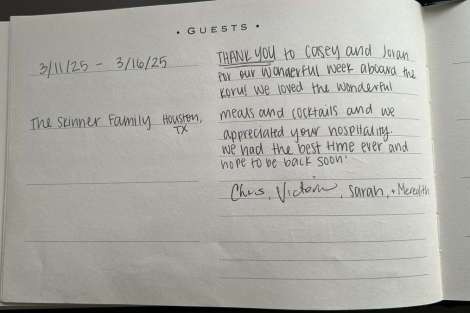 • GUESTS •
3/11/25 - 3/16/25
The Skinner Family Houston,
TX
THANK YOU to Casey and Jovan
for our wonderful week aboard the
Koru! We loved the wonderful
meals and cocktails and we
appreciated your hospitality.
We had the best time ever and
hope to be back soon!
Chris, Victoria, Sarah, + Meredith